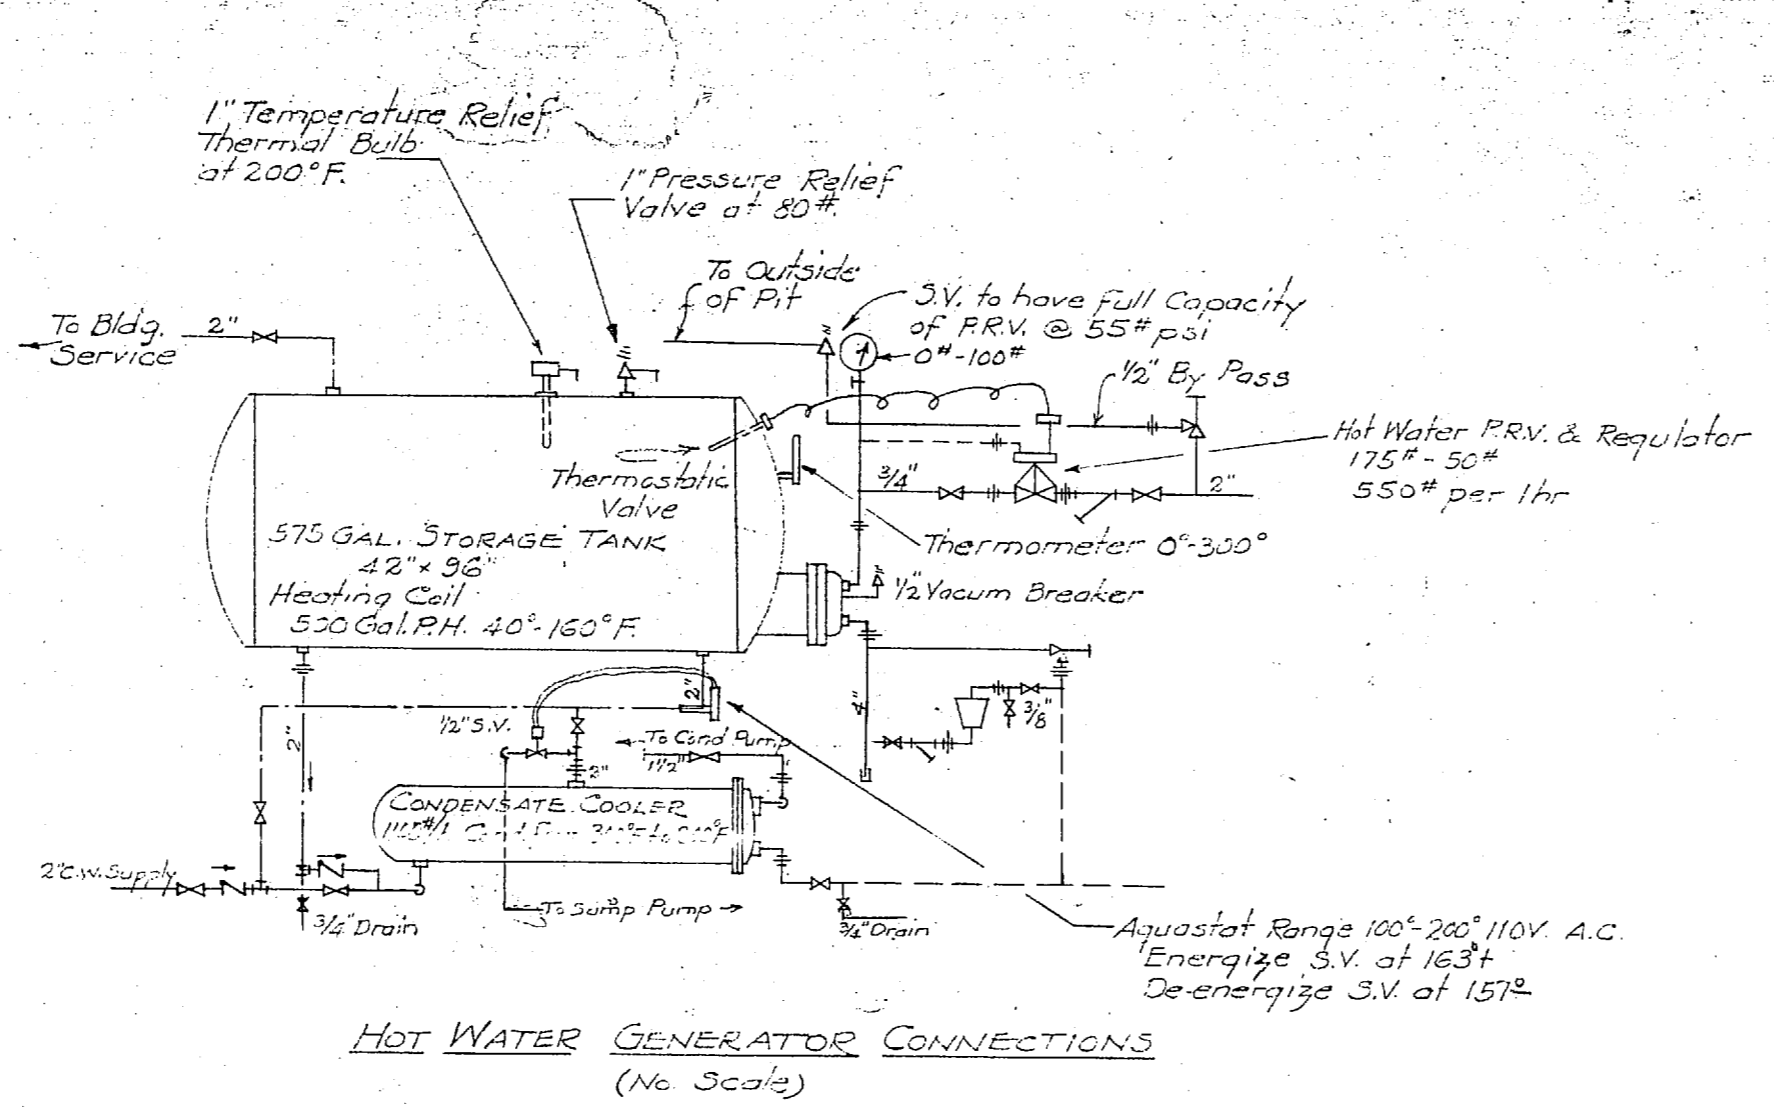 1" Temperature Relief
Thermal Bulb
at 200°F.
1" Pressure Relief
Valve at 80#.
To Outside
of Pit
S.V. to have full Capacity
of P.R.V. @ 55# psi
0#-100#
1/2" By Pass
To Bldg.
Service
2"
Hot Water P.R.V. & Regulator
175# - 50#
550# per 1hr
3/4"
2"
Thermostatic
Valve
575 GAL. STORAGE TANK
42" x 96"
Heating Coil
500 Gal. P.H. 40°-160°F.
Thermometer 0°-300°
1/2" Vacum Breaker
2"
2"
1/2" S.V.
To Cond Pump
1 1/2"
2"
4"
3/8"
CONDENSATE COOLER
2" C.W. Supply
3/4" Drain
To Sump Pump
3/4" Drain
Aquastat Range 100°-200° 110V. A.C.
Energize S.V. at 163°
De-energize S.V. at 157°
HOT WATER GENERATOR CONNECTIONS
(No Scale)